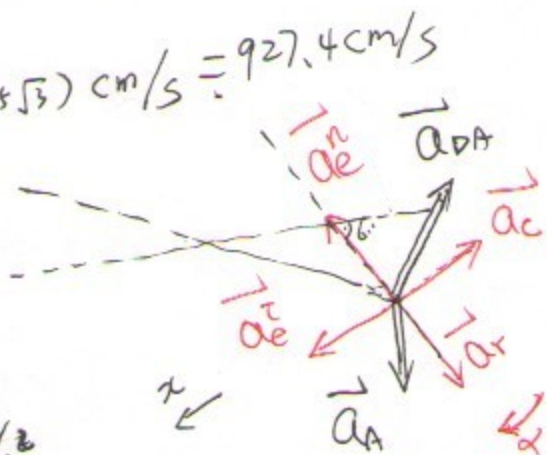 √3) cm/s ≐ 927.4 cm/s
a⃗ₑⁿ
a⃗_DA
a⃗_c
6
a⃗ₑ^τ
a⃗_r
x
a⃗_A
α